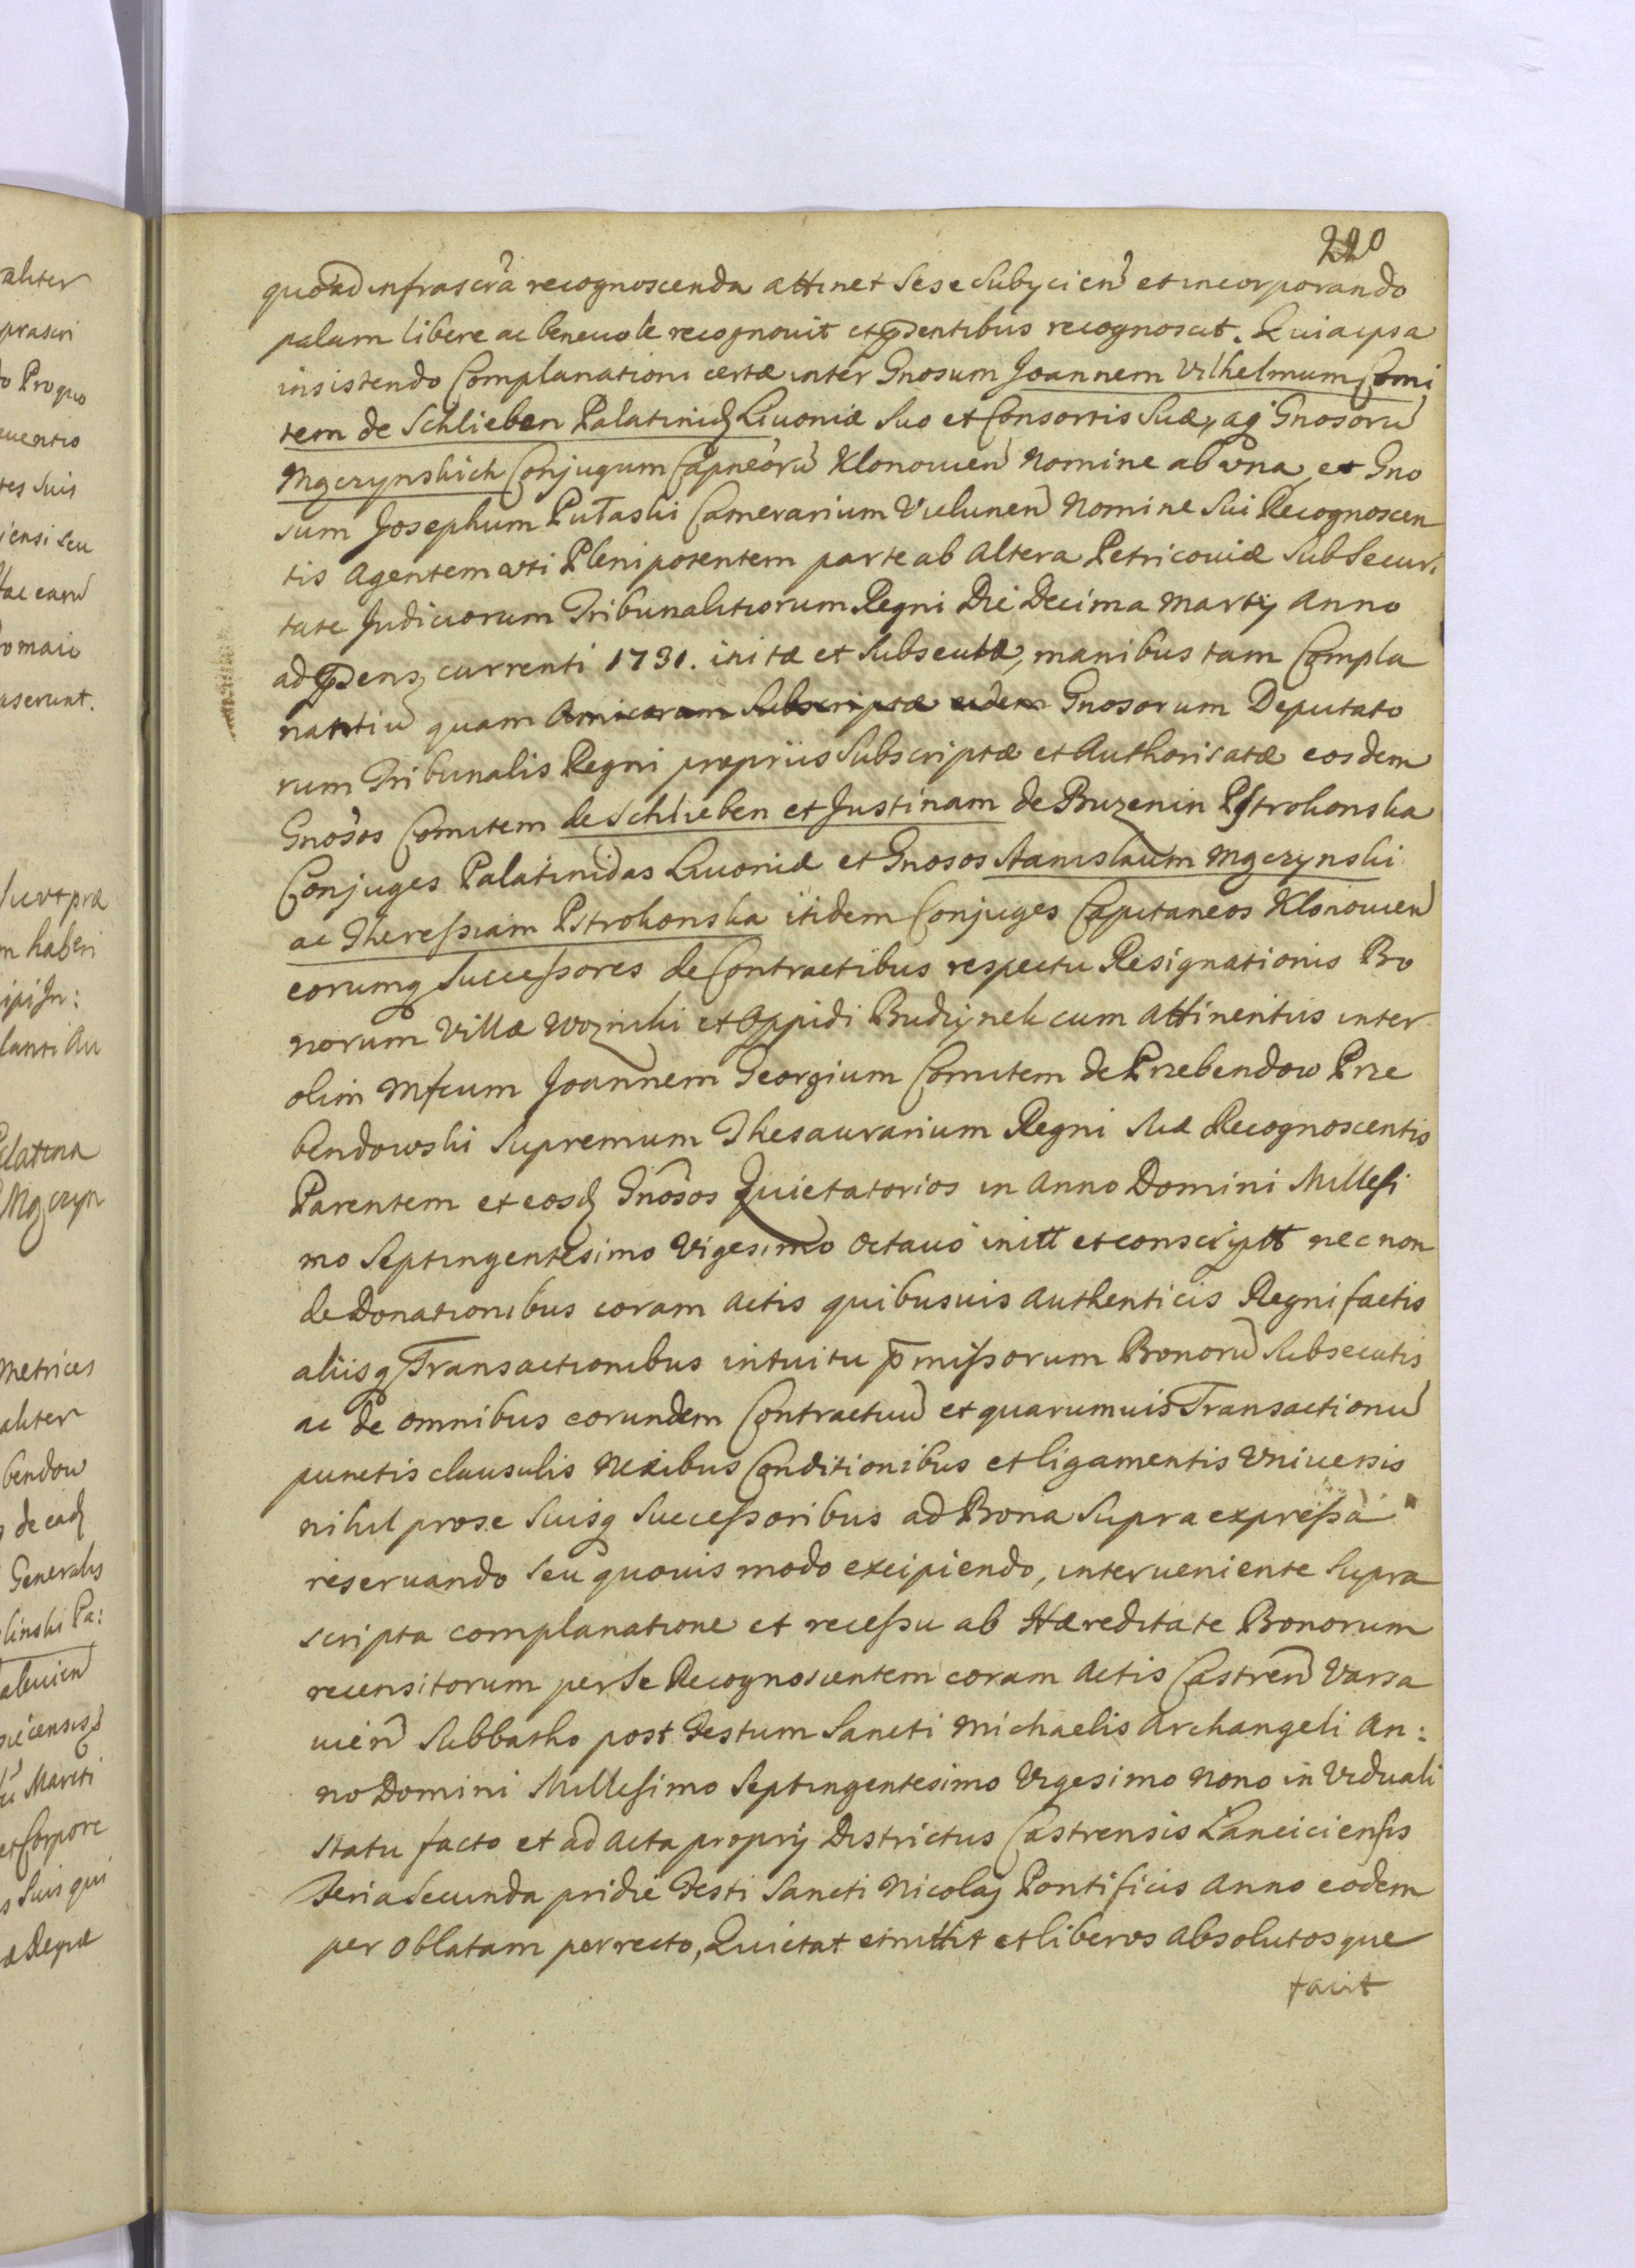 220
quoad infrascrã recognoscenda attinet sese subijcien̄ et incorporando
palam libere ac beneuole recognouit et p̄sentibus recognoscit. Quia ipsa
insistendo Complanationi certæ inter Gnosum Joannem Vilhelmum Comi
tem de Schlieben Palatinid. Liuoniæ suo et Consortis suæ, ac Gnosorū
Mączynskich Conjugum Capneorū Klonouien̄ nomine ab vna, et Gno
sum Josephum Putaski Camerarium Vielunen̄ nomine sui Recognoscen
tis agentem vti Plenipotentem parte ab altera Petricouiæ sub Securi
tate Judiciorum Tribunalitiorum Regni Die Decima Martij anno
ad p̄sens currenti 1731. initæ et subsecutæ, manibus tam Compla
nantiū quam amicorum subscriptæ eidem Gnosorum Deputato
rum Tribunalis Regni propriis subscriptæ et authorisatæ eosdem
Gnosos Comitem de Schlieben et Justinam de Buzenin Pstrokonska
Conjuges Palatinidas Liuoniæ et Gnosos Stanislaum Mączynski
ac Theressiam Pstrokonska itidem Conjuges Capitaneos Klonouien̄
eorumq successores de Contractibus respectu Resignationis Bo
norum Villæ Wozniki et Oppidi Budzynek cum attinentiis inter
olim Mfcum Joannem Georgium Comitem de Przebendow Prze
bendowski Supremum Thesaurarium Regni suæ Recognoscentis
Parentem et eosd. Gnosos Quietatorios in anno Domini Millesi
mo Septingentesimo Vigesimo octauo initt et conscriptt nec non
de Donationibus coram actis quibusuis authenticis Regni factis
aliisq Transactionibus intuitu p̄missorum Bonorū subsecutis
ac de omnibus eorundem Contractuū et quarumuis Transactionū
punctis clausulis nexibus Conditionibus et ligamentis vniuersis
nihil pro se suisq successoribus ad Bona supra expressa
reseruando seu quouis modo excipiendo, interueniente supra
scripta complanatione et recessu ab Hæreditate Bonorum
recensitorum per se Recognoscentem coram actis Castren̄ Varsa
uien̄ Sabbatho post Festum Sancti Michaelis Archangeli An:
no Domini Millesimo Septingentesimo Vigesimo nono in Viduali
statu facto et ad acta proprij Districtus Castrensis Lanciciensis
Feria Secunda pridie Festi Sancti Nicolaj Pontificis anno eodem
per oblatam porrecto, Quietat et mittit et liberos absolutosque
facit